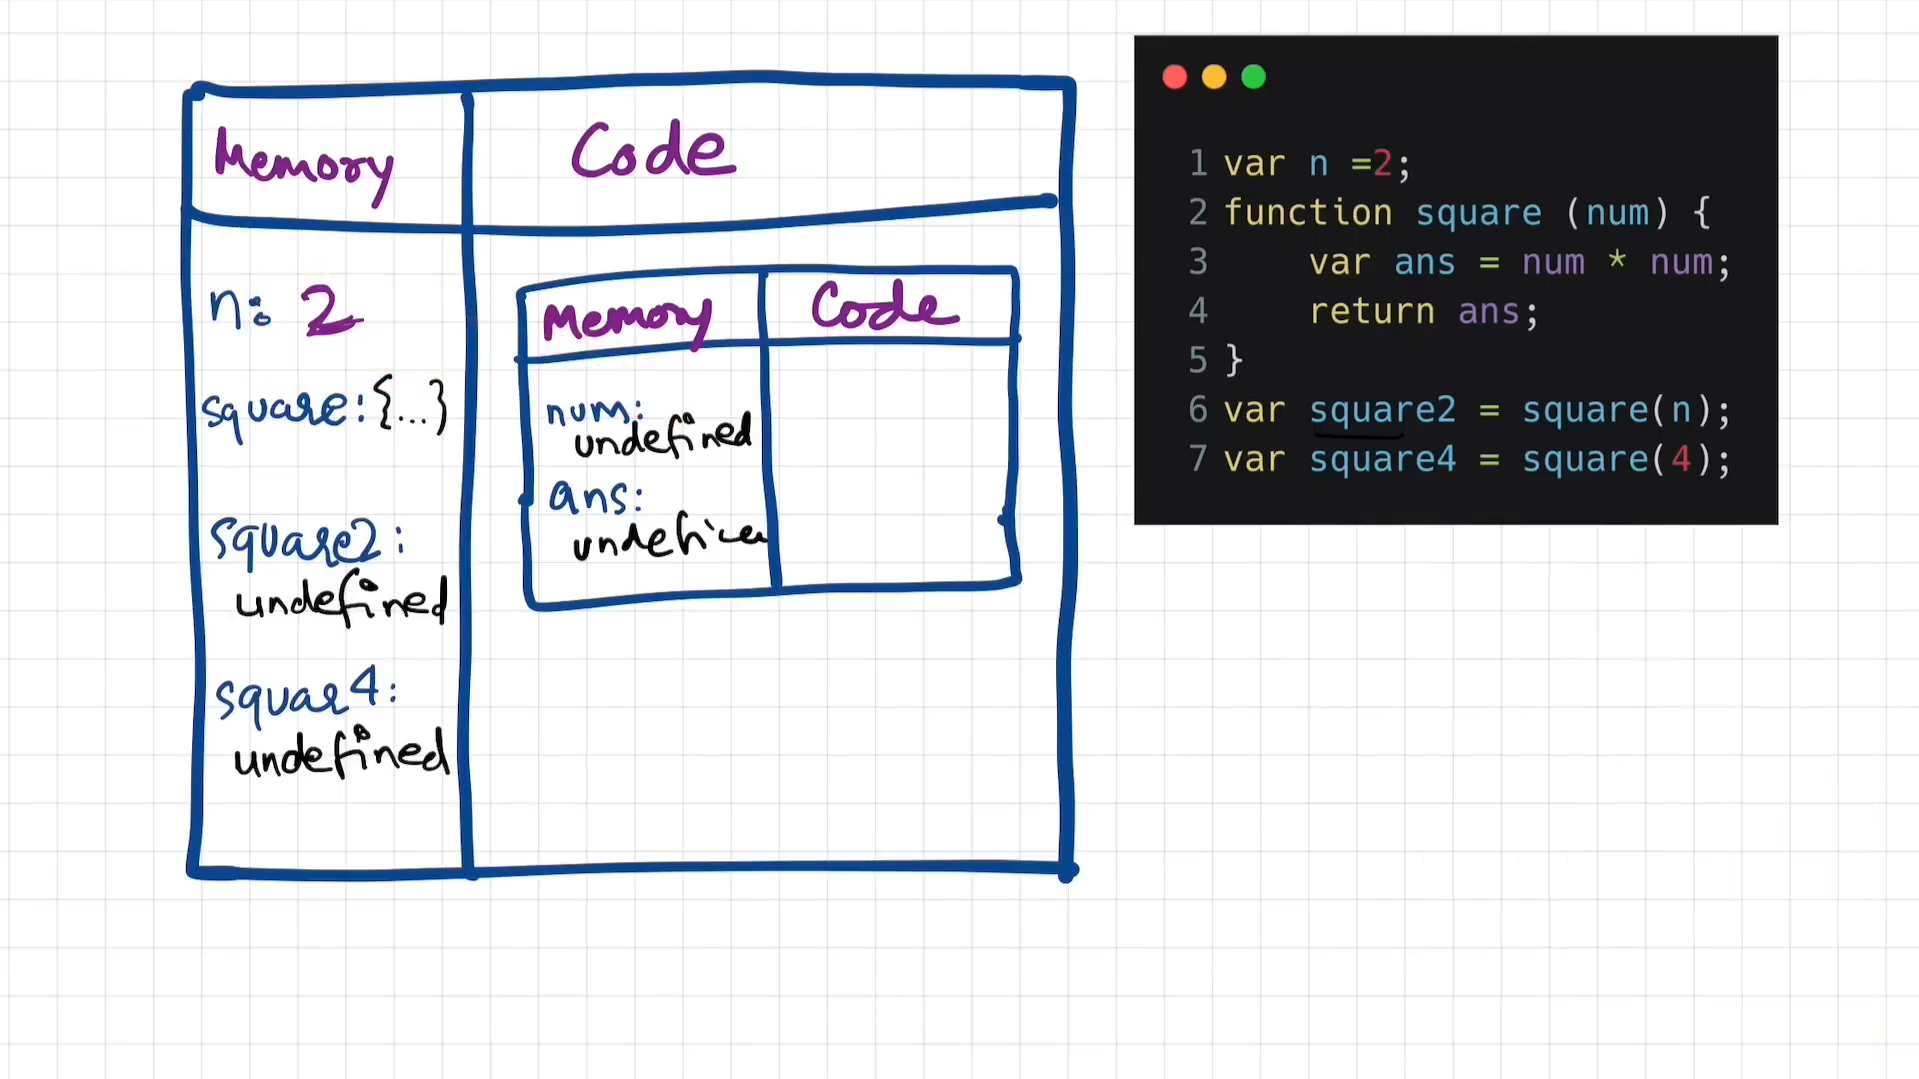 Memory
Code
n: 2
square: {...}
square2:
undefined
squar4:
undefined
Memory
Code
num:
undefined
ans:
1 var n =2;
2 function square (num) {
3 var ans = num * num;
4 return ans;
5 }
6 var square2 = square(n);
7 var square4 = square(4);